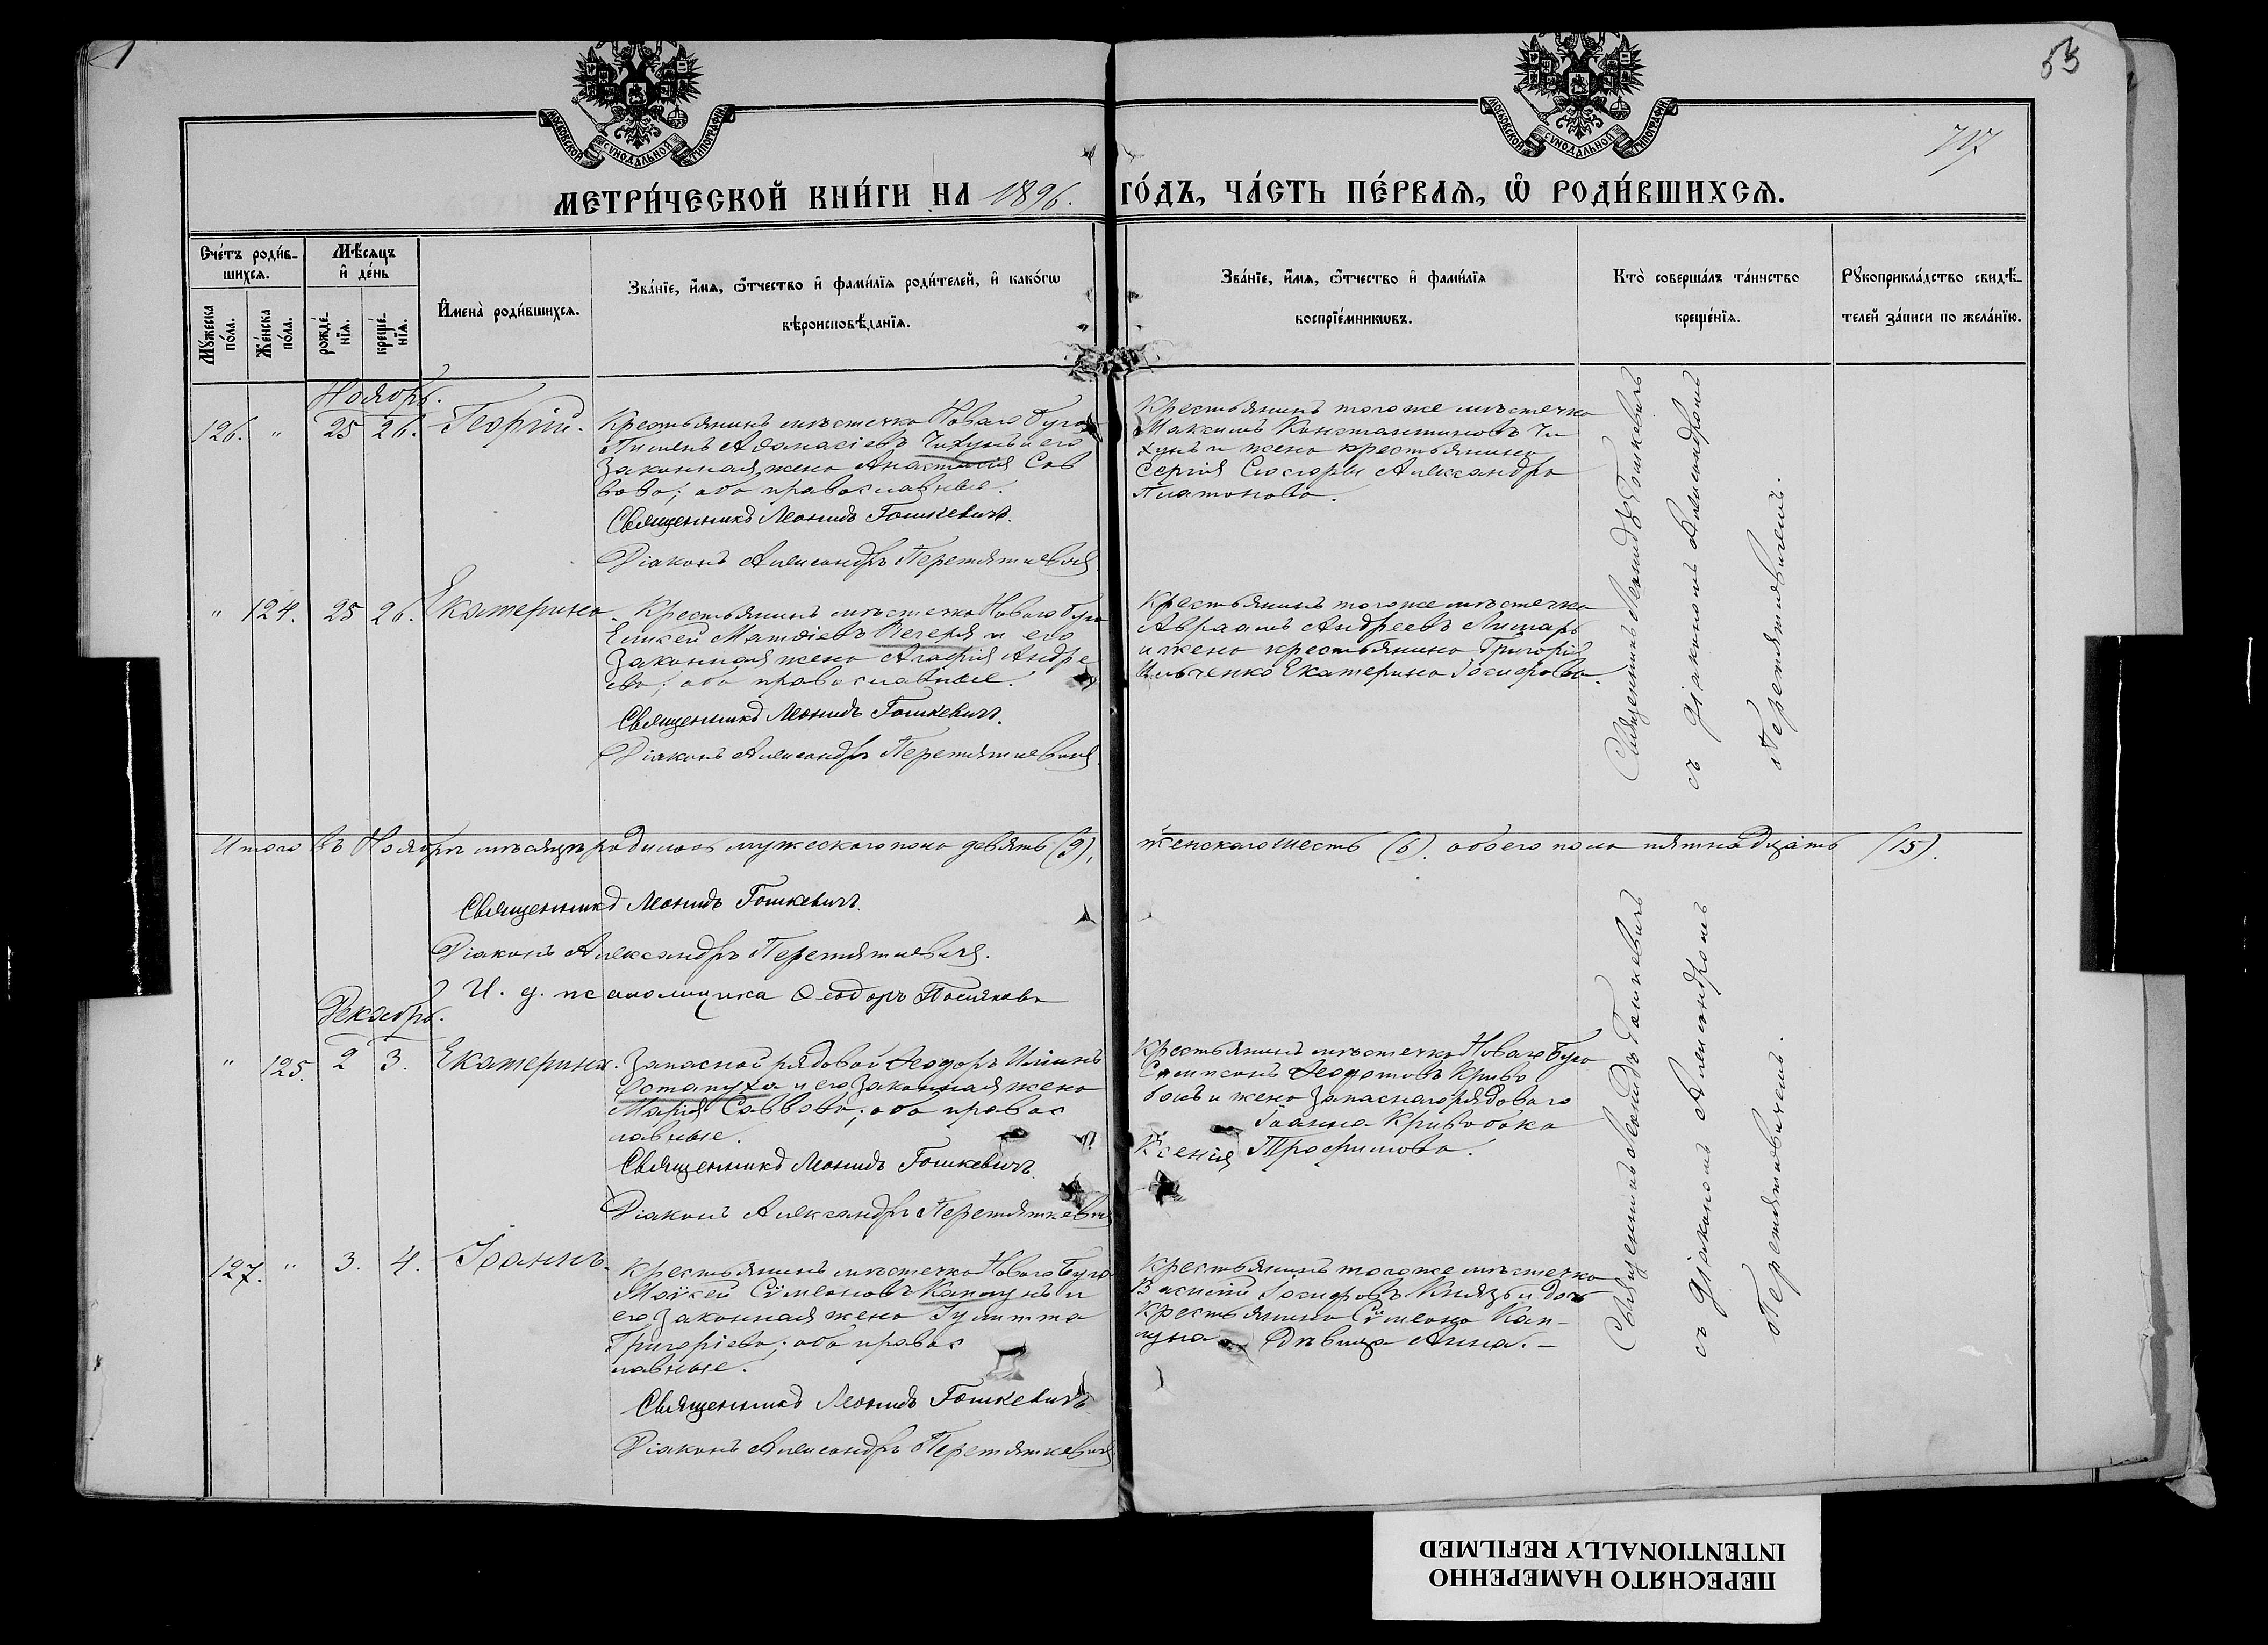 53
717
МОСКОВСКОЙ СѴНОДАЛЬНОЙ ТИПОГРАФІИ
МОСКОВСКОЙ СѴНОДАЛЬНОЙ ТИПОГРАФІИ
МЕТРИ́ЧЕСКОЙ КНИ́ГИ НА 1896. ГО́ДЪ, ЧА́СТЬ ПЕ́РВАѦ, Ѽ РОДИ́ВШИХСѦ.
Сче́тъ роди́в-
шихсѧ.
Мꙋ́жеска по́ла.
Же́нска по́ла.
Мѣ́сѧцъ
и҆ де́нь
рожде́-
нїѧ.
креще́-
нїѧ.
И҆мена̀ роди́вшихсѧ.
Зва́нїе, и҆́мѧ, ѻ҆́тчество и҆ фами́лїѧ роди́телей, и҆ како́гѡ
вѣроисповѣ́данїѧ.
Зва́нїе, и҆́мѧ, ѻ҆́тчество и҆ фами́лїѧ
воспрїе́мникѡвъ.
Кто̀ соверша́лъ та́инство
креще́нїѧ.
Рꙋкоприкла́дство свидѣ́-
телей за́писи по жела́нїю.
Ноябрь.
126. " 25 26. Георгій.
Крестьянинъ мѣстечка Новаго Буга
Пименъ Аѳанасіевъ Чихунъ и его
законная жена Анастасія Сав
вова; оба православные.
Священникъ Леонидъ Гошкевичъ.
Діаконъ Александръ Перетяткевичъ
Крестьянинъ того же мѣстечка
Максимъ Константиновъ Чи
хунъ и жена крестьянина
Сергія Сюсюры Александра
Платонова.
Священникъ Леонидъ Гошкевичъ
съ діакономъ Александромъ
Перетяткевичемъ.
" 124. 25 26. Екатерина.
Крестьянинъ мѣстечка Новаго Буга
Елисей Матѳіевъ Вечеря и его
законная жена Агафія Андре
ева; оба православные.
Священникъ Леонидъ Гошкевичъ.
Діаконъ Александръ Перетяткевичъ.
Крестьянинъ того же мѣстечка
Авраамъ Андреевъ Лимарь
и жена крестьянина Григорія
Ильченко Екатерина Іосифова.
Итого въ Ноябрѣ мѣсяцѣ родилось мужескаго пола девять (9), женскаго шесть (6). обоего пола пятнадцать (15).
Священникъ Леонидъ Гошкевичъ.
Діаконъ Александръ Перетяткевичъ.
И. д. псаломщика Ѳеодоръ Поляковъ
Декабрь.
" 125. 2 3. Екатерина.
Запасной рядовой Ѳеодоръ Ильинъ
Остапуха и его законная жена
Марія Саввова; оба правос
лавные.
Священникъ Леонидъ Гошкевичъ.
Діаконъ Александръ Перетяткевичъ
Крестьянинъ мѣстечка Новаго Буга
Сампсонъ Ѳедотовъ Криво
бокъ и жена запаснаго рядоваго
Іоанна Кривобока
Ксенія Трофимова.
Священникъ Леонидъ Гошкевичъ
съ діакономъ Александромъ
Перетяткевичемъ.
127. " 3. 4. Іоаннъ.
Крестьянинъ мѣстечка Новаго Буга
Моѵсей Сѵмеоновъ Каплунъ и
его законная жена Іулитта
Григоріева; оба правос
лавные.
Священникъ Леонидъ Гошкевичъ
Діаконъ Александръ Перетяткевичъ
Крестьянинъ того же мѣстечка
Василій Іосифовъ Князь и дочь
крестьянина Сѵмеона Кап-
луна Дѣвица Анна. —
ПЕРЕСНЯТО НАМЕРЕННО
INTENTIONALLY REFILMED